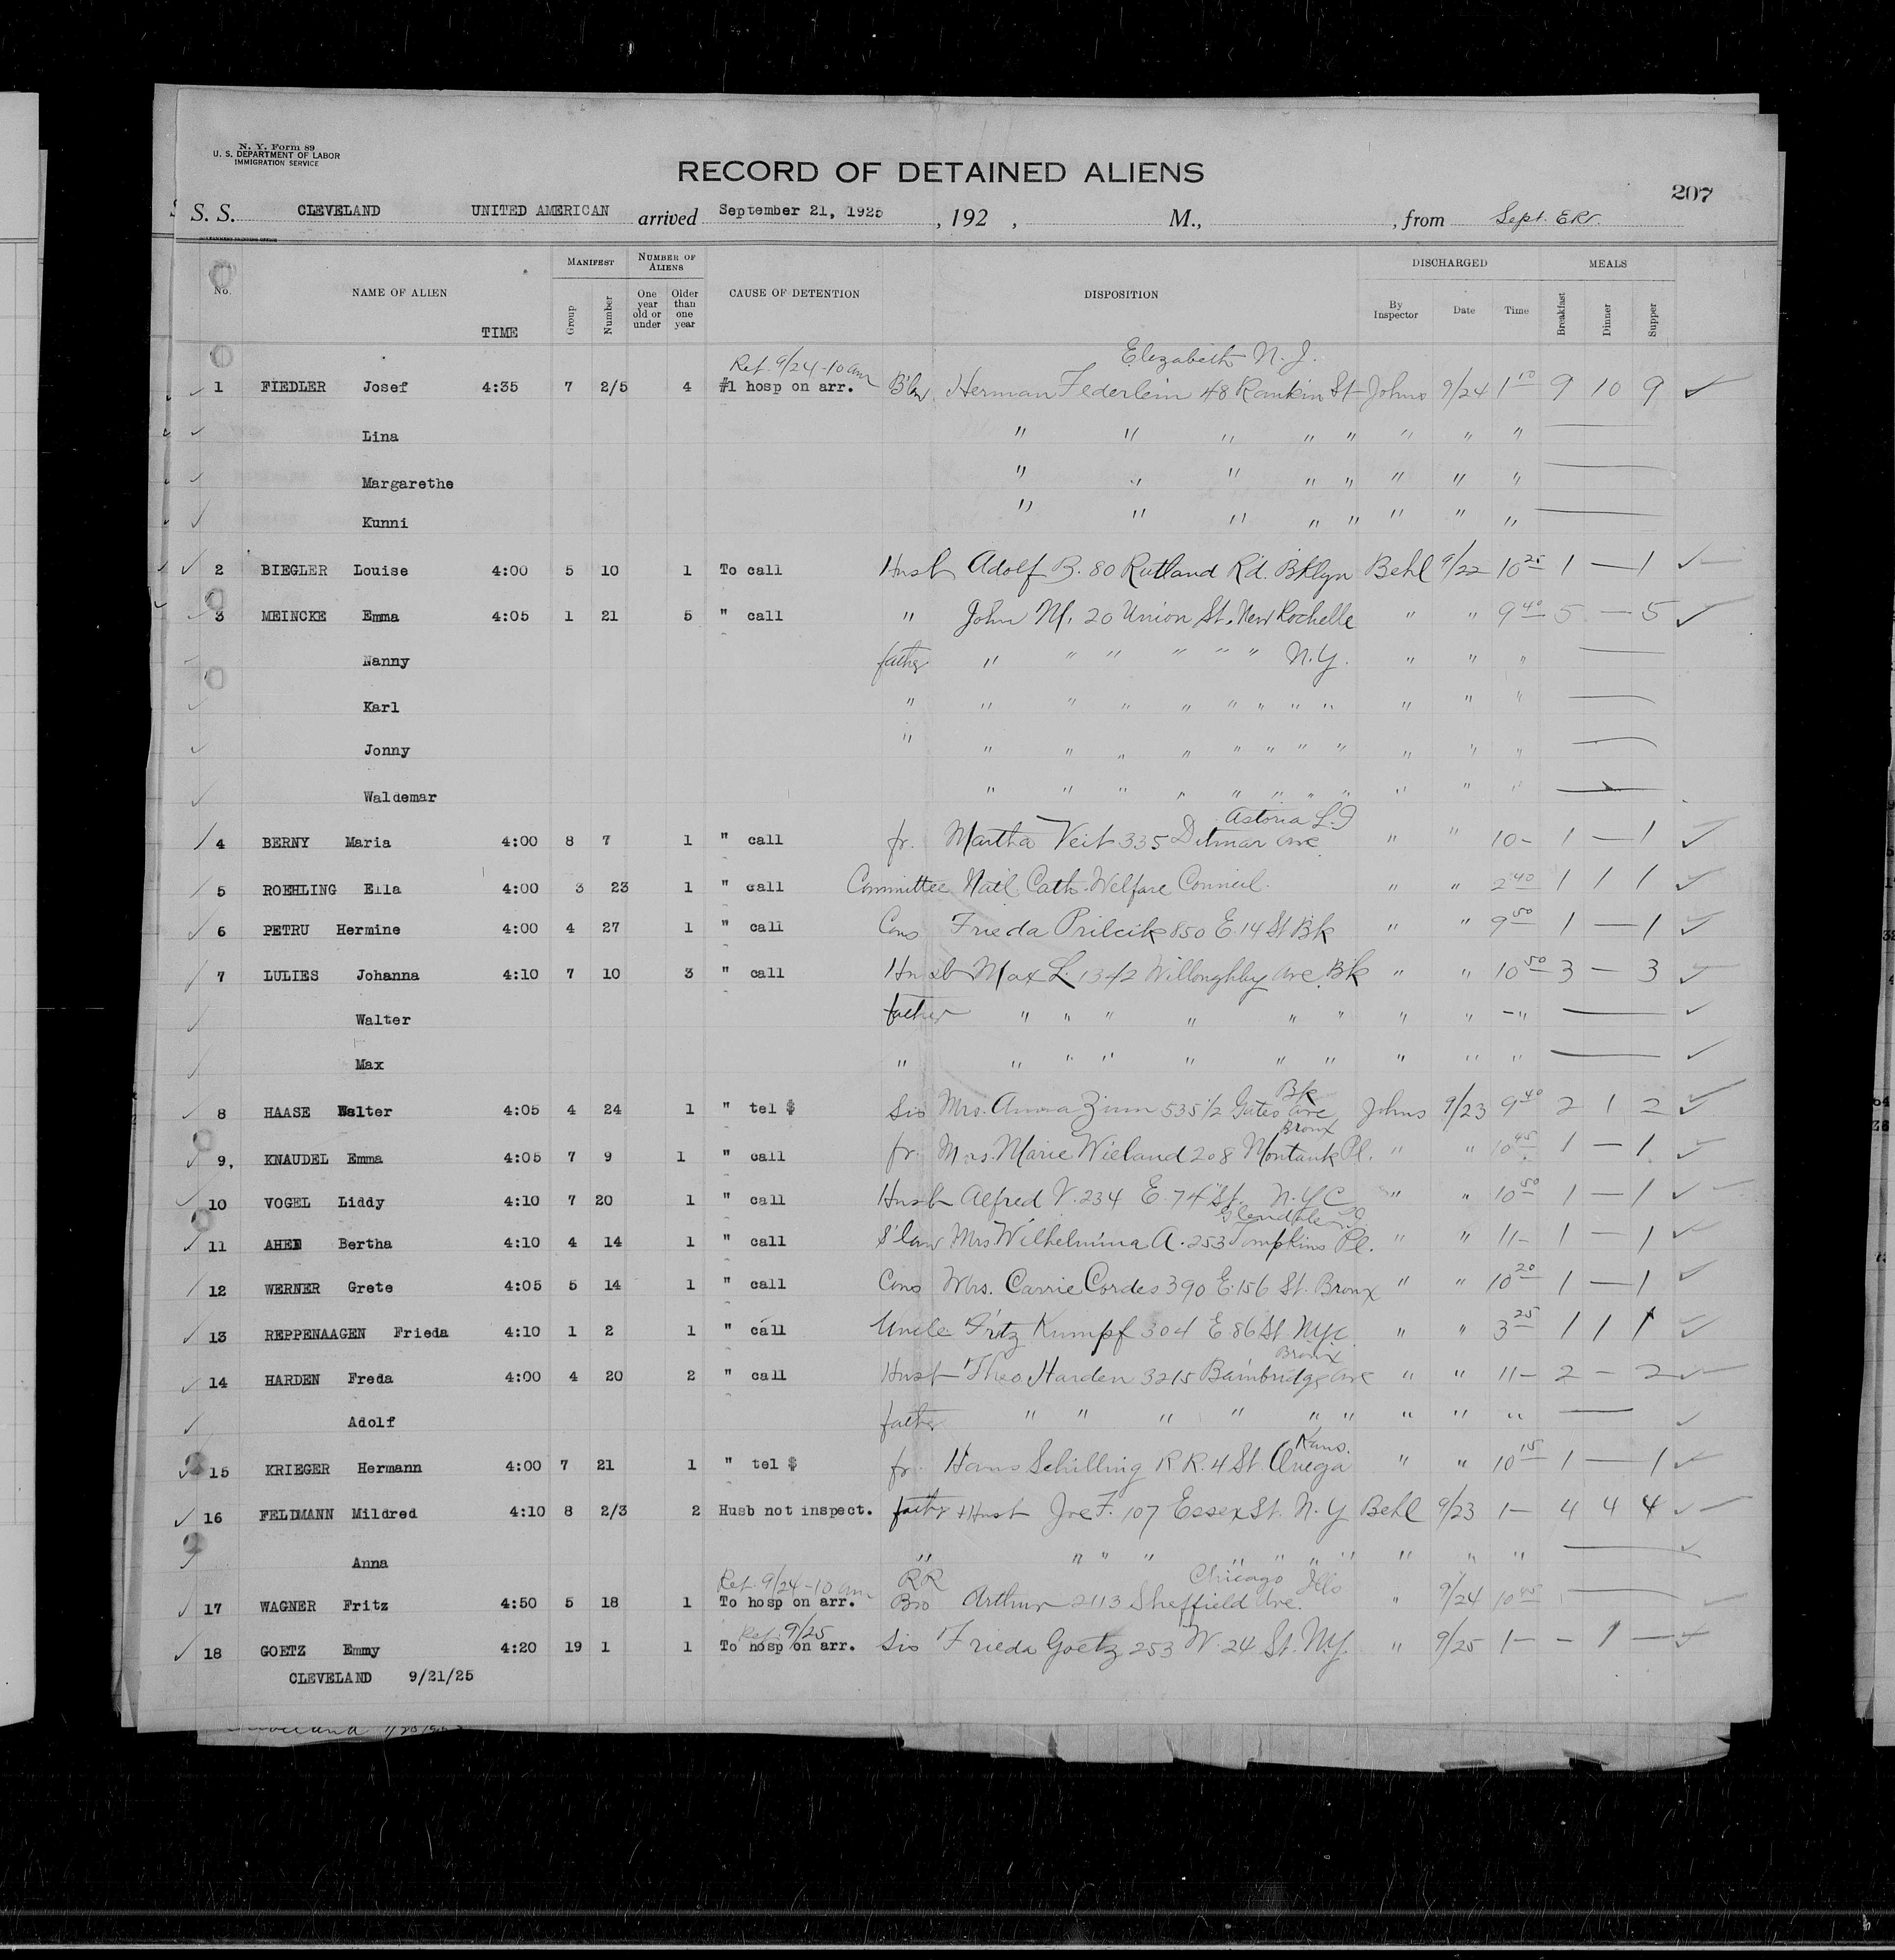 N. Y. Form 89
U. S. DEPARTMENT OF LABOR
IMMIGRATION SERVICE
RECORD OF DETAINED ALIENS
207
S. S. CLEVELAND UNITED AMERICAN arrived September 21, 1925, 192 , M., , from Sept.
GOVERNMENT PRINTING OFFICE
No. NAME OF ALIEN TIME MANIFEST Group Number NUMBER OF ALIENS One year old or under Older than one year CAUSE OF DETENTION DISPOSITION DISCHARGED By Inspector Date Time MEALS Breakfast Dinner Supper
Ret. 9/24-10 am Elizabeth N. J.
1 FIEDLER Josef 4:35 7 2/5 4 #1 hosp on arr. B'law Herman Federlein 48 Rankin St Johns 9/24 1 10 9 10 9 ✓
Lina " " " " " " " "
Margarethe " " " " " " " "
Kunni " " " " " " " "
2 BIEGLER Louise 4:00 5 10 1 To call Husb Adolf B. 80 Rutland Rd. Bklyn Behl 9/22 10 25 1 — 1 ✓
3 MEINCKE Emma 4:05 1 21 5 " call " John M. 20 Union St. New Rochelle " " 9 40 5 — 5 ✓
Nanny father " " " " " " N.Y. " " "
Karl " " " " " " " " " " " "
Jonny " " " " " " " " " " " "
Waldemar " " " " " " " " " " "
Astoria L.I
4 BERNY Maria 4:00 8 7 1 " call fr. Martha Veit 335 Ditmar Ave " " 10- 1 — 1 ✓
5 ROEHLING Ella 4:00 3 23 1 " call Committee Nat'l Cath. Welfare Council. " " 2 40 1 1 1 ✓
6 PETRU Hermine 4:00 4 27 1 " call Cous Frieda Prilcik 850 E. 14 St Bk " " 9 50 1 — 1 ✓
7 LULIES Johanna 4:10 7 10 3 " call Husb Max L. 1342 Willoughby Ave. Bk " " 10 50 3 — 3 ✓
Walter father " " " " " " " " " ✓
Max " " " " " " " " " " ✓
Bk
8 HAASE Walter 4:05 4 24 1 " tel $ Sis Mrs. Anna Zinn 535 1/2 Gates Ave Johns 9/23 9 40 2 1 2 ✓
Bronx
9. KNAUDEL Emma 4:05 7 9 1 " call fr. Mrs. Marie Wieland 208 Montauk Pl. " " 10 45 1 — 1 ✓
10 VOGEL Liddy 4:10 7 20 1 " call Husb Alfred V. 234 E. 74 St. N.Y.C " " 10 50 1 — 1 ✓
Glendale
11 Bertha 4:10 4 14 1 " call S'law Mrs Wilhelmina A. 253 Tompkins Pl. " " 11- 1 — 1 ✓
12 WERNER Grete 4:05 5 14 1 " call Cous Mrs. Carrie Cordes 390 E. 156 St. Bronx " " 10 20 1 — 1 ✓
13 REPPENAAGEN Frieda 4:10 1 2 1 " call Uncle Fritz Kumpf 304 E. 86 St NYC " " 3 25 1 1 1 ✓
Bronx
14 HARDEN Freda 4:00 4 20 2 " call Husb Theo Harden 3215 Bainbridge Ave " " 11- 2 - 2 ✓
Adolf father " " " " " " " " " ✓
Kans.
15 KRIEGER Hermann 4:00 7 21 1 " tel $ fr. Hans Schilling R R. 4 St. " " 10 15 1 — 1 ✓
16 FELDMANN Mildred 4:10 8 2/3 2 Husb not inspect. father + Husb Joe F. 107 Essex St. N. Y Behl 9/23 1- 4 4 4 ✓
Anna " " " " " " " " " " " ✓
Ret. 9/24-10 am RR Chicago Ills
17 WAGNER Fritz 4:50 5 18 1 To hosp on arr. Bro Arthur 2113 Sheffield Ave. " 9/24 10 45
Ret. 9/25
18 GOETZ Emmy 4:20 19 1 1 To hosp on arr. Sis Frieda Goetz 253 W. 24 St. N.Y. " 9/25 1- - 1 — ✓
CLEVELAND 9/21/25